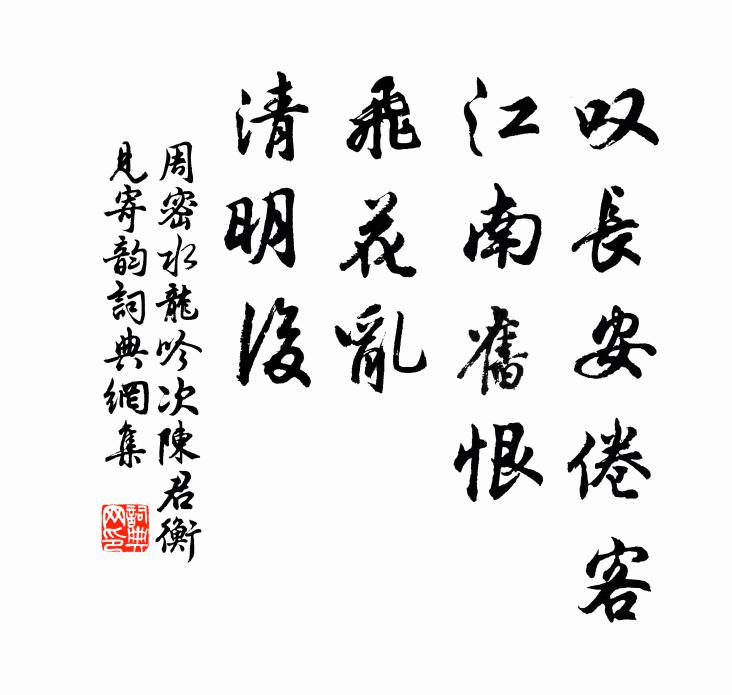 叹長安倦客
江南舊恨
飛花亂
清明後
周密水龍吟次陳君衡
見寄韵詞典網集
詞典
网印